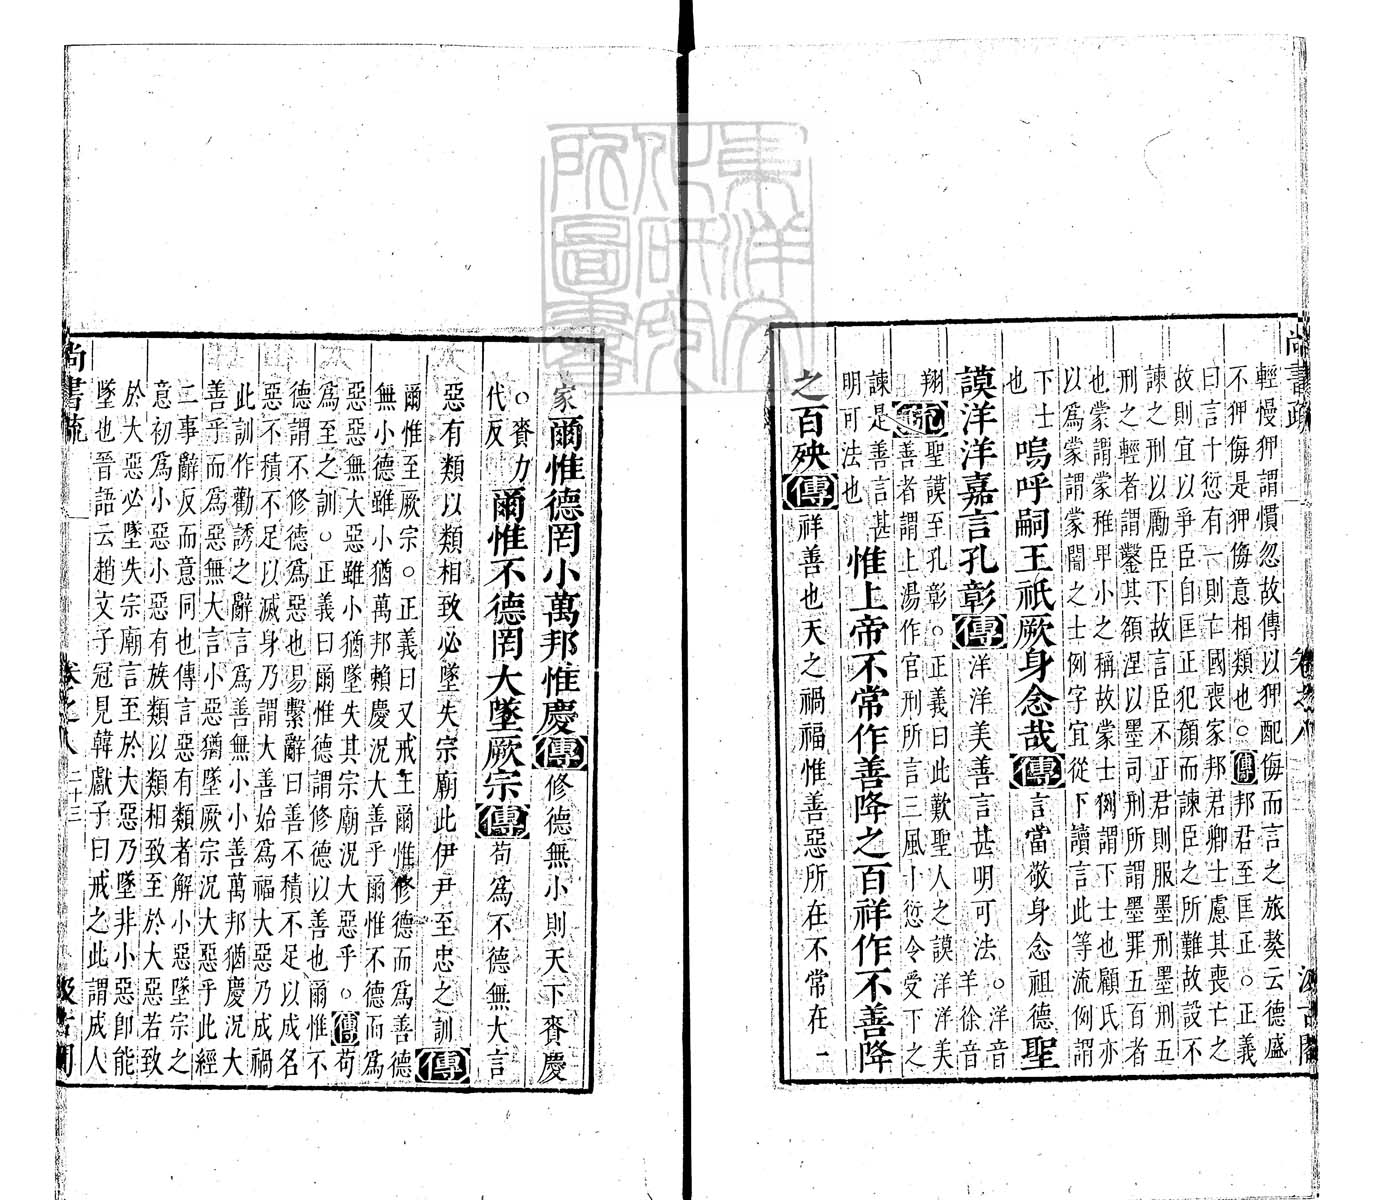 輕慢狎謂慣忽故傳以狎配侮而言之旅獒云德盛
不狎侮是狎侮意相類也○傳邦君至匡正○正義
曰言十愆有一則亡國喪家邦君卿士慮其喪亡之
故則宜以爭臣自匡正犯顏而諫臣之所難故設不
諫之刑以勵臣下故言臣不正君則服墨刑墨刑五
刑之輕者謂鑿其頟涅以墨司刑所謂墨罪五百者
也蒙謂蒙稚卑小之稱故蒙士例謂下士也顧氏亦
以為蒙謂蒙闇之士例字宜從下讀言此等流例謂
下士
也
嗚呼嗣王祇厥身念哉傳言當敬身念祖德聖
謨洋洋嘉言孔彰傳洋洋美善言甚明可法○洋音
羊徐音
翔
疏
聖謨至孔彰○正義曰此歎聖人之謨洋洋美
善者謂上湯作官刑所言三風十愆令受下之
諫是善言甚
明可法也
惟上帝不常作善降之百祥作不善降
之百殃傳祥善也天之禍福惟善惡所在不常在一
家爾惟德罔小萬邦惟慶傳修德無小則天下賚慶
○賚力
代反
爾惟不德罔大墜厥宗傳苟為不德無大言
惡有類以類相致必墜失宗廟此伊尹至忠之訓傳
爾惟至厥宗○正義曰又戒王爾惟修德而為善德
無小德雖小猶萬邦賴慶況大善乎爾惟不德而為
惡惡無大惡雖小猶墜失其宗廟況大惡乎○傳苟
為至之訓○正義曰爾惟德謂修德以善也爾惟不
德謂不修德為惡也易繫辭曰善不積不足以成名
惡不積不足以滅身乃謂大善始為福大惡乃成禍
此訓作勸誘之辭言為善無小小善萬邦猶慶況大
善乎而為惡無大言小惡猶墜厥宗況大惡乎此經
二事辭反而意同也傳言惡有類者解小惡墜宗之
意初為小惡小惡有族類以類相致至於大惡若致
於大惡必墜失宗廟言至於大惡乃墜非小惡即能
墜也晉語云趙文子冠見韓獻子曰戒之此謂成人
尚書疏 卷之八 二十三 汲古閣
東洋文化研究所圖書